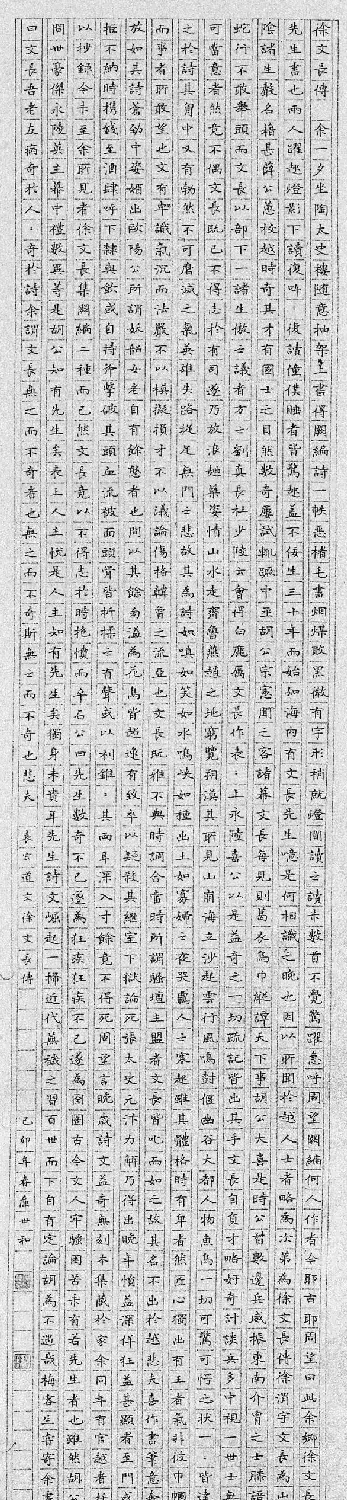 徐文長傳　余一夕坐陶太史樓隨意抽架上書得闕編詩一帙惡楮毛書烟煤敗黑微有字形稍就燈間讀之讀未數首不覺驚躍急呼周望闕編何人作者今耶古耶周望曰此余鄉徐文長
先生書也兩人躍起燈影下讀復叫。彼讀僮僕睡者皆驚起蓋不佞生三十年而始知海內有文長先生噫是何相識之晚也因以所聞於越人士者略為次第為徐文長傳徐渭字文長為山
陰諸生聲名藉甚薛公蕙校越時奇其才有國士之目然數奇屢試輒蹶中丞胡公宗憲聞之客諸幕文長每見則葛衣烏巾縱譚天下事胡公大喜是時公督數邊兵威振東南介冑之士膝語
蛇行不敢舉頭而文長以部下一諸生傲之議者方之劉真長杜少陵云會得白鹿屬文長作表。上永陵喜公以是益奇之一切疏記皆出其手文長自負才略好奇計談兵多中視一世士無
可當意者然竟不偶文長既已不得志於有司遂乃放浪麯蘗恣情山水走齊魯燕趙之地窮覽朔漠其所見山崩海立沙起雲行風鳴樹偃幽谷大都人物魚鳥一切可驚可愕之狀一。皆達
之於詩其胸中又有勃然不可磨滅之氣英雄失路托足無門之悲故其為詩如嗔如笑如水鳴峽如種出土如寡婦之夜哭羈人之寒起雖其體格時有卑者然匠心獨出有王者氣非彼巾幗
而事者所敢望也文有卓識氣沉而法嚴不以模擬損才不以議論傷格韓曾之流亞也文長既雅不與時調合當時所謂騷壇主盟者文長皆叱而奴之故其名不出於越悲夫喜作書筆意奔
放如其詩蒼勁中姿媚躍出歐陽公所謂妖韶女老自有餘態者也間以其餘旁溢為花鳥皆超逸有致卒以疑殺其繼室下獄論死張太史元汴力解乃得出晚年憤益深佯狂益甚顯者至門或
拒不納時攜錢至酒肆呼下隸與飲或自持斧擊破其頭血流被面頭骨皆折揉之有聲或以利錐。其兩耳深入寸餘竟不得死周望言晚歲詩文益奇無刻本集藏於家余同年有官越者托
以抄錄今未至余所見者徐文長集闕編二種而已然文長竟以不得志於時抱憤而卒石公曰先生數奇不已遂為狂疾狂疾不已遂為囹圄古今文人牢騷困苦未有若先生者也雖然胡公
間世豪傑永陵英主幕中禮數異等是胡公知有先生矣表上人主悅是人主知有先生矣獨身未貴耳先生詩文崛起一掃近代蕪穢之習百世而下自有定論胡為不遇哉梅客生嘗寄余書
曰文長吾老友病奇於人。奇於詩余謂文長無之而不奇者也無之而不奇斯無之而不奇也悲夫　袁宏道文徐文長傳　己卯年春　世和